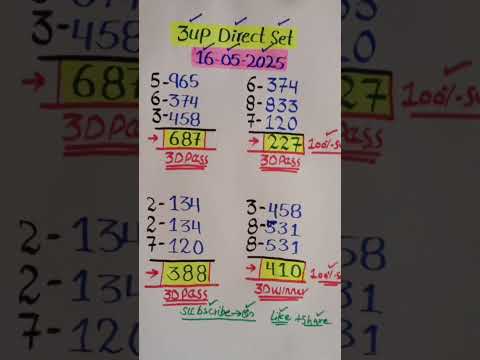 3up Direct Set
16-05-2025
5-965
6-374
3-458
→ 687
3D Pass
6-374
8-833
7-120
→ 227
3D Pass
100%
2-134
2-134
7-120
→ 388
3D Pass
3-458
8-531
8-531
→ 410
3D Winner
100%
Subscribe→
Like + Share
3-458
687
2-
2-
7-12
120
27
100%
58
31
31